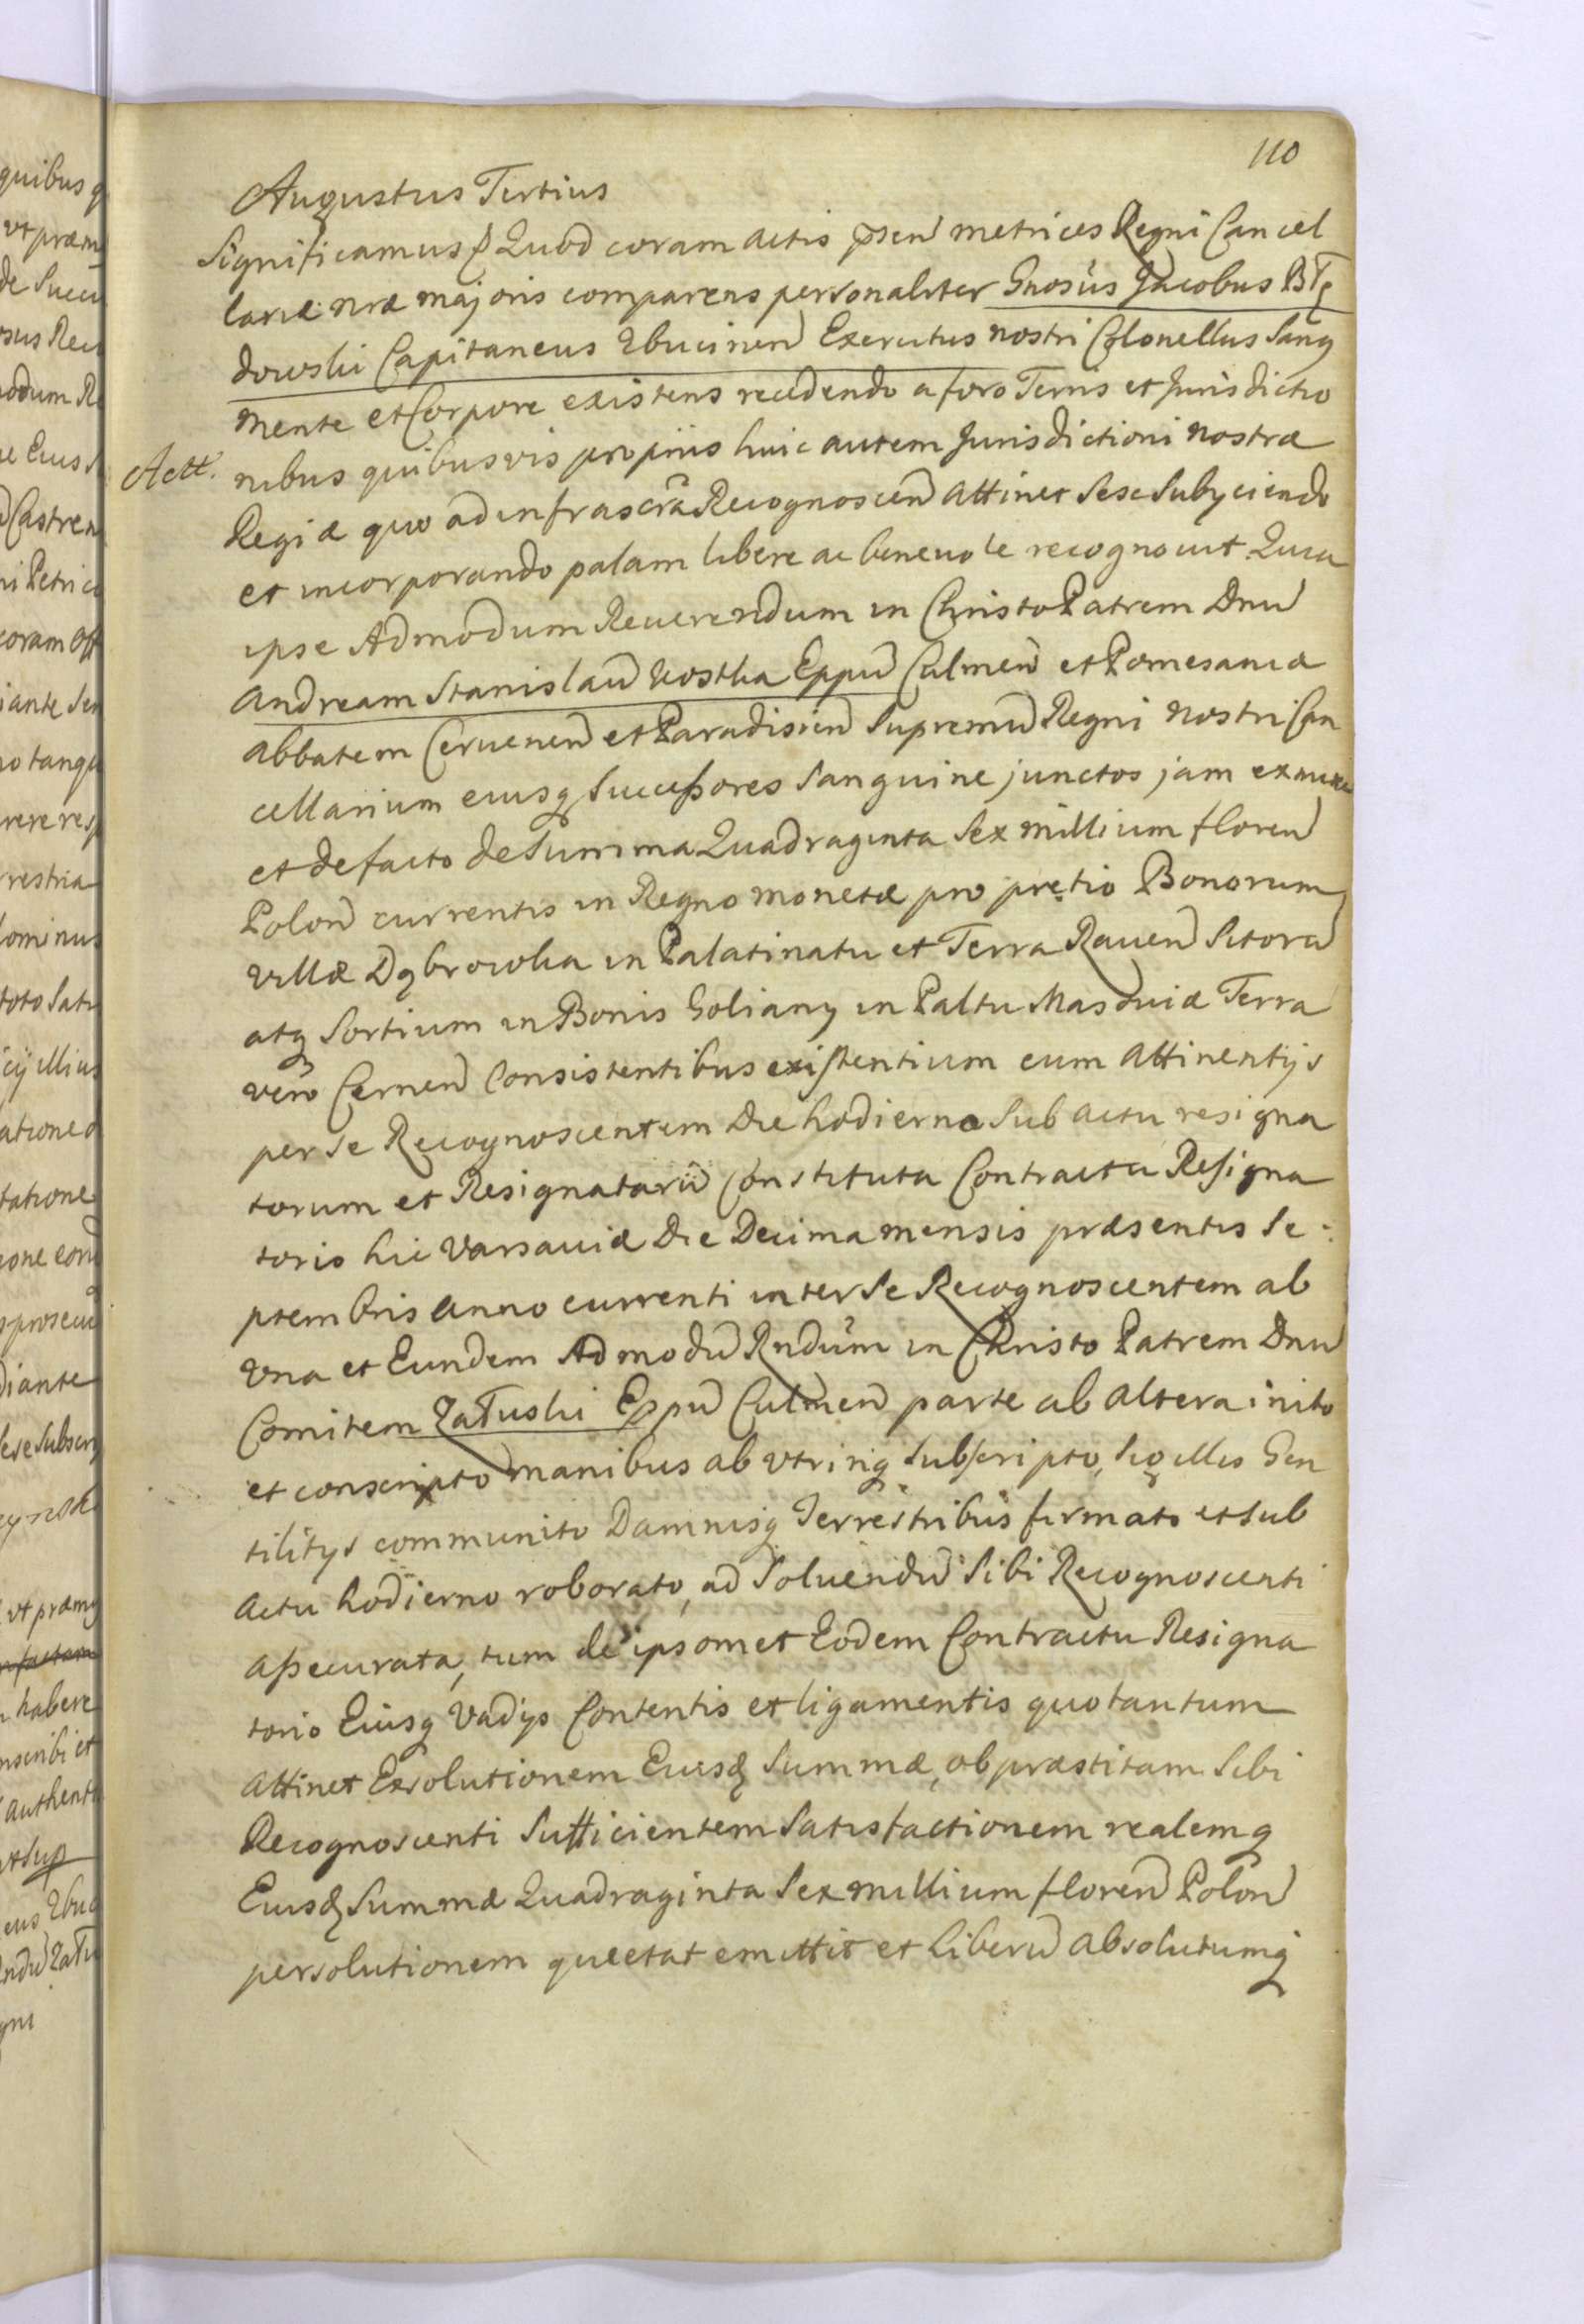 110
Augustus Tertius
Significamus Quod coram actis psen metrices Regni Cancel
lariæ nræ majoris comparens personaliter Gnosus Jacobus Błę
dowski Capitaneus Zbucinen Exercitus nostri Colonellus Sang
mente et Corpore existens recedendo a foro Terris et Jurisdictio
Actt. nibus quibusvis proprijs huic autem Jurisdictioni nostræ
Regiæ quo ad infrascra Recognoscen attinet sese Subyciendo
et incorporando palam libere ac beneuole recognouit. Quia
ipse Admodum Reuerendum in Christo Patrem Dnu
Andream Stanislau Kostka Eppu Culmen et Pomesaniæ
Abbatem Ceruenen et Paradisien Supremu Regni nostri Can
cellarium eiusq Successores Sanguine junctos jam ex nunc
et de facto de Summa Quadraginta Sex millium floren
Polon currentis in Regno monetæ pro pretio Bonorum
Villæ Dąbrowka in Palatinatu et Terra Rauen Sitoru
atq Sortium in Bonis Goliany in Paltu Masouiæ Terra
vero Cernen Consistentibus existentium cum Attinentijs
per se Recognoscentem Die hodierna Sub actu resigna
torum et Resignatariu Constituta Contractu Resigna
torio hic Varsauiæ Die Decima mensis præsentis Se
ptembris Anno currenti inter se Recognoscentem ab
Vna et Eundem Admodu Rndum in Christo Patrem Dnu
Comitem Załuski Eppu Culmen parte ab altera inito
et conscripto manibus ab vtrinq subscripto, Sigillis Gen
tilitys communito Damnisq Terrestribus firmato et sub
Actu hodierno roborato, ad Soluendu Sibi Recognoscenti
assecurata, tum de ipsomet Eodem Contractu Resigna
torio Eiusq Vadijs Contentis et ligamentis quo tantum
Attinet Exsolutionem Eiusd Summæ, ob præstitam Sibi
Recognoscenti Sufficientem Satisfactionem realemq
Eiusd Summæ Quadraginta Sex millium floren Polon
persolutionem quietat emittit et liberu absolutumq